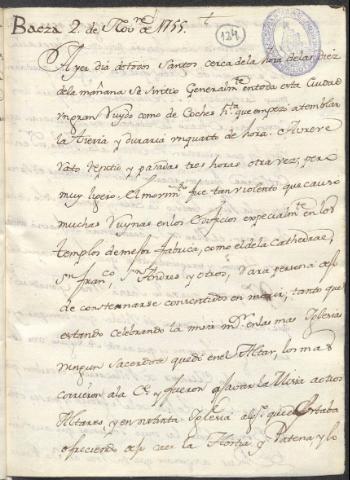 Baeza 2. de Nov.re de 1755.
124
Ayer dia de todos Santos cerca de la hora de las diez
de la mañana se sintio Generalm.te en toda esta Ciudad
un gran Ruydo como de Coches h.ta que empezó a temblar
la tierra y duraria un quarto de hora. A breve
rato repitio y pasadas tres horas otra vez, pero
muy ligero. El movim.to fue tan violento que causó
muchas Ruynas en los Edificios especialm.te en los
templos de mejor fabrica, como el de la Cathedral,
S.n Fran.co, S.n Andres y otros, Rara persona dejó
de consternarse tanto que
estando celebrando la misa en las mas Iglesias
ningun Sacerdote quedó en el Altar, los mas
corrieron a la y fueron a la Misa a otros
Altares, y en nuestra Iglesia el que estaba
ofreciendo dejó caer la Hostia y Patena y lo